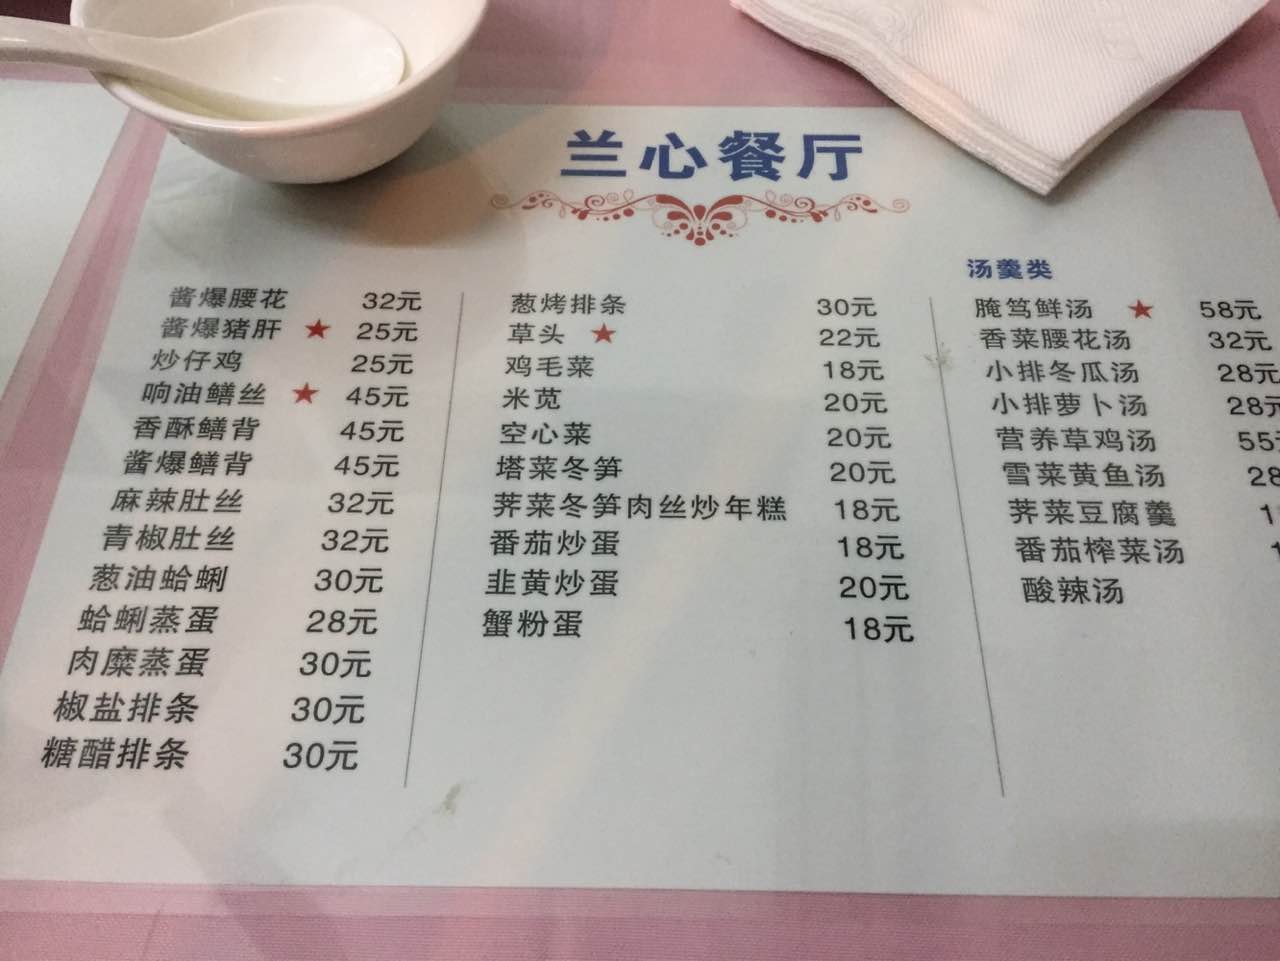 兰心餐厅
酱爆腰花 32元
酱爆猪肝 ★ 25元
炒仔鸡 25元
响油鳝丝 ★ 45元
香酥鳝背 45元
酱爆鳝背 45元
麻辣肚丝 32元
青椒肚丝 32元
葱油蛤蜊 30元
蛤蜊蒸蛋 28元
肉糜蒸蛋 30元
椒盐排条 30元
糖醋排条 30元
葱烤排条 30元
草头 ★ 22元
鸡毛菜 18元
米苋 20元
空心菜 20元
塔菜冬笋 20元
荠菜冬笋肉丝炒年糕 18元
番茄炒蛋 18元
韭黄炒蛋 20元
蟹粉蛋 18元
汤羹类
腌笃鲜汤 ★ 58元
香菜腰花汤 32元
小排冬瓜汤 28元
小排萝卜汤 28元
营养草鸡汤 55元
雪菜黄鱼汤 28
荠菜豆腐羹
番茄榨菜汤
酸辣汤